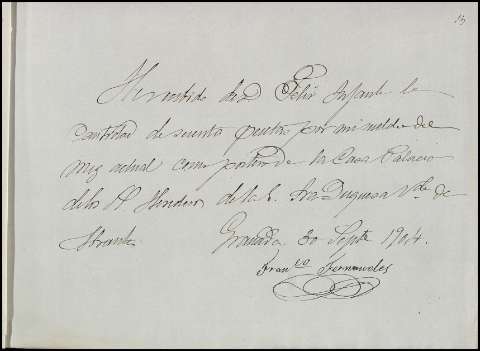 13
He recibido de D Felix Infante la
cantidad de sesenta pesetas por mi sueldo del
mes actual como portero de la Casa Palacio
de los de la E. Sra Duquesa Vda de
Abrantes. Granada 30 Septe 1904.
Franco Fernandes